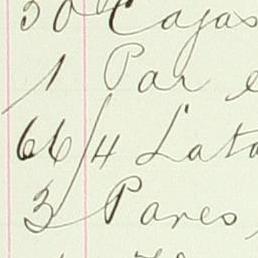 50 Cajas
1 Par
66/4 Lata
3 Pares